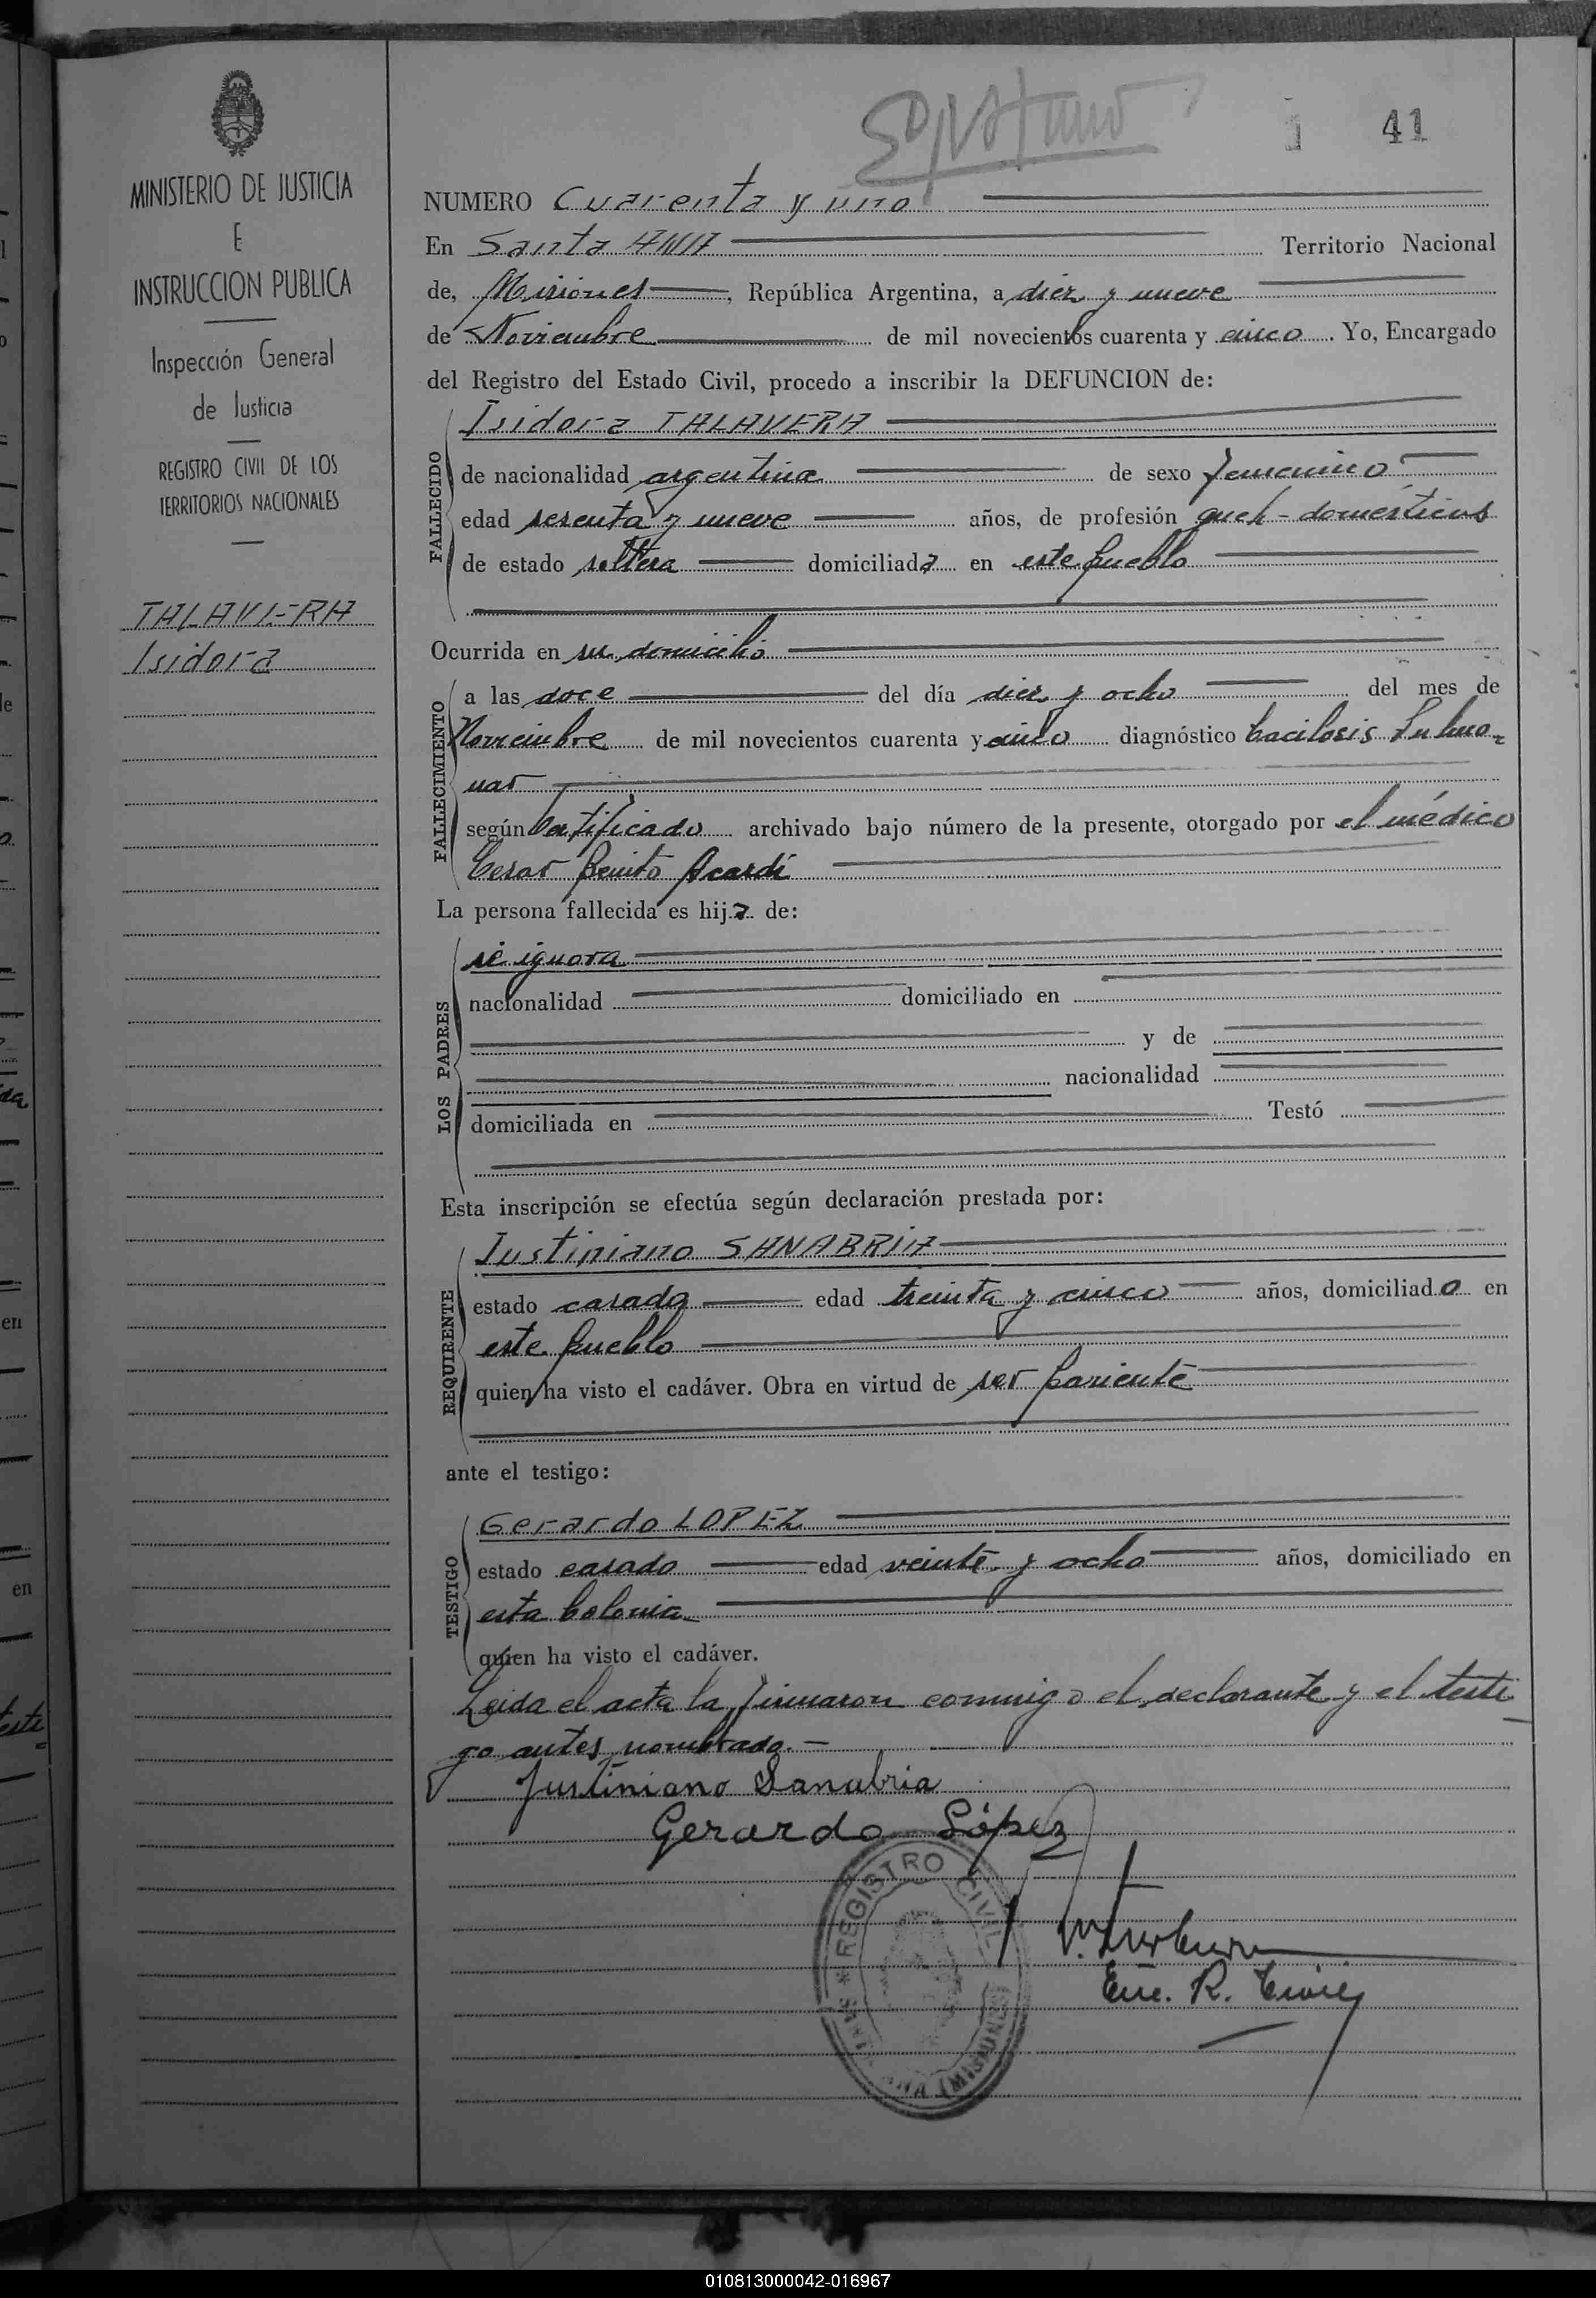 41
MINISTERIO DE JUSTICIA
E
INSTRUCCION PUBLICA
Inspección General
de Justicia
REGISTRO CIVIL DE LOS
TERRITORIOS NACIONALES
TALAVERA
Isidora
NUMERO Cuarenta y uno
En Santa ANA Territorio Nacional
de, Misiones, República Argentina, a diez y nueve
de Noviembre de mil novecientos cuarenta y cinco. Yo, Encargado
del Registro del Estado Civil, procedo a inscribir la DEFUNCION de:
FALLECIDO
Isidora TALAVERA
de nacionalidad argentina de sexo femenino
edad sesenta y nueve años, de profesión queh-domésticos
de estado soltera domiciliada en este pueblo
Ocurrida en su domicilio
FALLECIMIENTO
a las doce del día diez y ocho del mes de
Noviembre de mil novecientos cuarenta y cinco diagnóstico bacilosis Pulmo-
nar
según Certificado archivado bajo número de la presente, otorgado por el médico
Cesar Benito Acardi
La persona fallecida es hija de:
LOS PADRES
se ignora
nacionalidad domiciliado en
y de
nacionalidad
domiciliada en Testó
Esta inscripción se efectúa según declaración prestada por:
REQUIRENTE
Justiniano SANABRIA
estado casado edad treinta y cinco años, domiciliado en
este pueblo
quien ha visto el cadáver. Obra en virtud de ser pariente
ante el testigo:
TESTIGO
Gerardo LOPEZ
estado casado edad veinte y ocho años, domiciliado en
esta Colonia
quien ha visto el cadáver.
Leida el acta la firmaron conmigo el declarante y el testi
go antes nombrado.-
Justiniano Sanabria
Gerardo López
REGISTRO CIVIL
SANTA ANA (MISIONES)
Enc. R. Civil
010813000042-016967